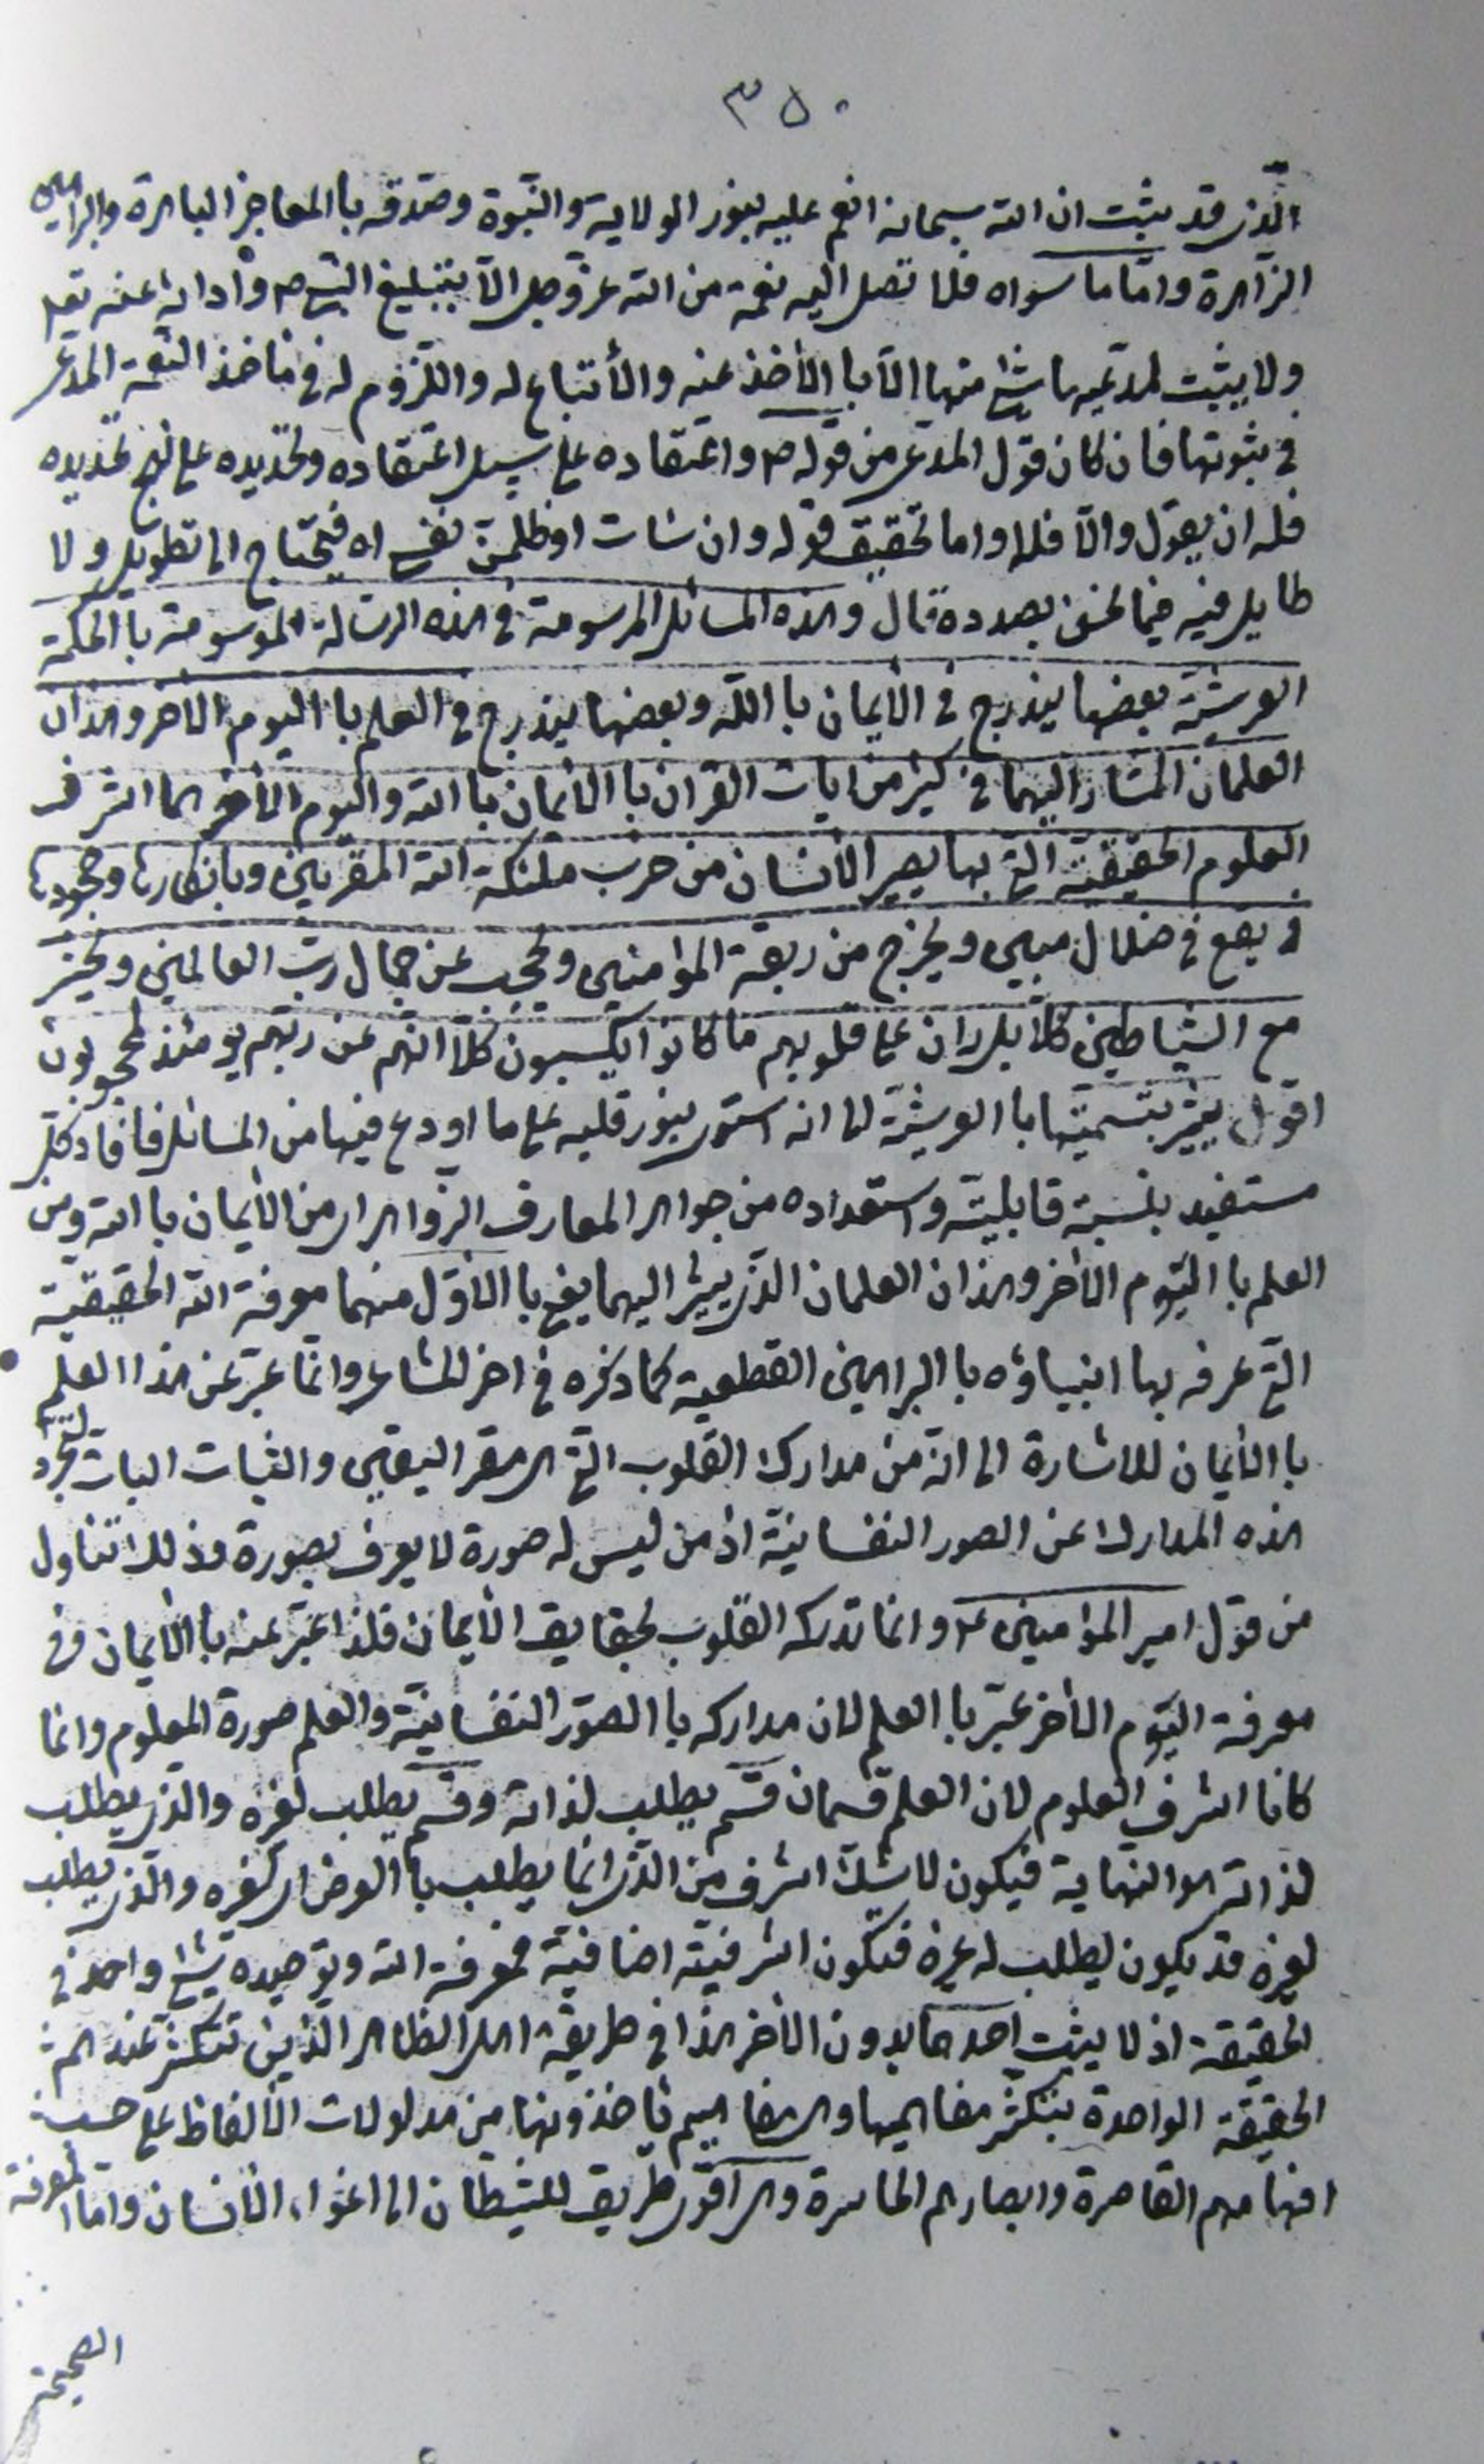 ٣٥٠
الّذى قد يثبت ان الله سبحانه انعم عليه بنور الولاية والنّبوة وصدقه باالمعاجز الباهرة والبراهين
الزّاهرة وامّا ما سواه فلا تصل اليه نعمة من الله عزّ وجل الّا بتبليغ النبى ص وادائه عنه تعالى
ولا يثبت لمدعيها شئ منها الّا باالأخذ عنه والأتباع له واللّزوم له فى ماخذ النّعمة المدعى
فى ثبوتها فان كان قول المدعى من قوله ص واعتقاده على سبيل اعتقاده وتحديده على نهج تحديده
فله ان يقول والّا فلا واما تحقيق قوله وان شات او ظلمت نفسى اه فيحتاج الى تطويل ولا
طايل فيه فيما نحن بصدده قال وهذه المسائل المرسومة فى هذه الرسالة الموسومة باالحكمة
العرشيّة بعضها يندرج فى الأيمان باالله وبعضها يندرج فى العلم باليوم الأخر وهذان
العلمان المشار اليهما فى كثير من ايات القران باالأيمان باالله واليوم الأخر هما اشرف
العلوم الحقيقيّة التى بها يصير الأنسان من حزب ملئكة الله المقربين وبانكارها وجحودها
يقع فى ضلال مبين ويخرج من ربقة المؤامنين ويحجب عن جمال ربّ العالمين ويحشر
مع الشّياطين كلّا بل ران على قلوبهم ما كانوا يكسبون كلّا انّهم عن ربّهم يومئذ لمحجوبون
اقول يشير بتسميتها باالعرشيّة الى انه استوى بنور قلبه على ما اودع فيها من المسائل فافاد كلّ
مستفيد بنسبة قابليّته واستعداده من جواهر المعارف الزّواهر اى من الأيمان باالله ومن
العلم باليوم الأخر وهذان العلمان الذى يشير اليهما يعنى باالأوّل منهما معرفة الله الحقيقية
التى عرفه بها انبياؤه باالبراهين القطعية كما ذكره فى اخر المشاعر وانّما عبّر عن هذا العلم
باالأيمان للاشارة الى انّه من مدارك القلوب التى هى مقر اليقين والثبات البات لتجرّد
هذه المدارك عن الصور النفسانيّة اذ من ليس له صورة لا يعرف بصورة وذلك تناول
من قول امير المؤامنين ع وانما تدركه القلوب بحقايق الأيمان فلذا عبّر عنه باالأيمان وفى
معرفة اليوم الأخر عبّر باالعلم لان مداركه باالصور النفسانيّة والعلم صورة المعلوم وانما
كانا اشرف العلوم لان العلم قسمان قسم يطلب لذاته وقسم يطلب لغيره والذى يطلب
لذاته هو النهاية فيكون لا شكّ اشرف من الّذى انما يطلب باالعرض اى لغيره والّذى يطلب
لغيره قد يكون يطلب له غيره فتكون اشرفيّته اضافيّة فمعرفة الله وتوحيده شئ واحد فى
الحقيقة اذ لا يثبت احدهما بدون الأخر هذا فى طريقة اهل الظاهر الذين تتكثّر عندهم
الحقيقة الواحدة بتكثّر مفاهيمها والمفاهيم ياخذونها من مدلولات الألفاظ على حسب
افهامهم القاصرة وابصارهم الحاسرة وهى اقوى طريق للشيطان الى اغواء الأنسان واما المعرفة
الصحيحة